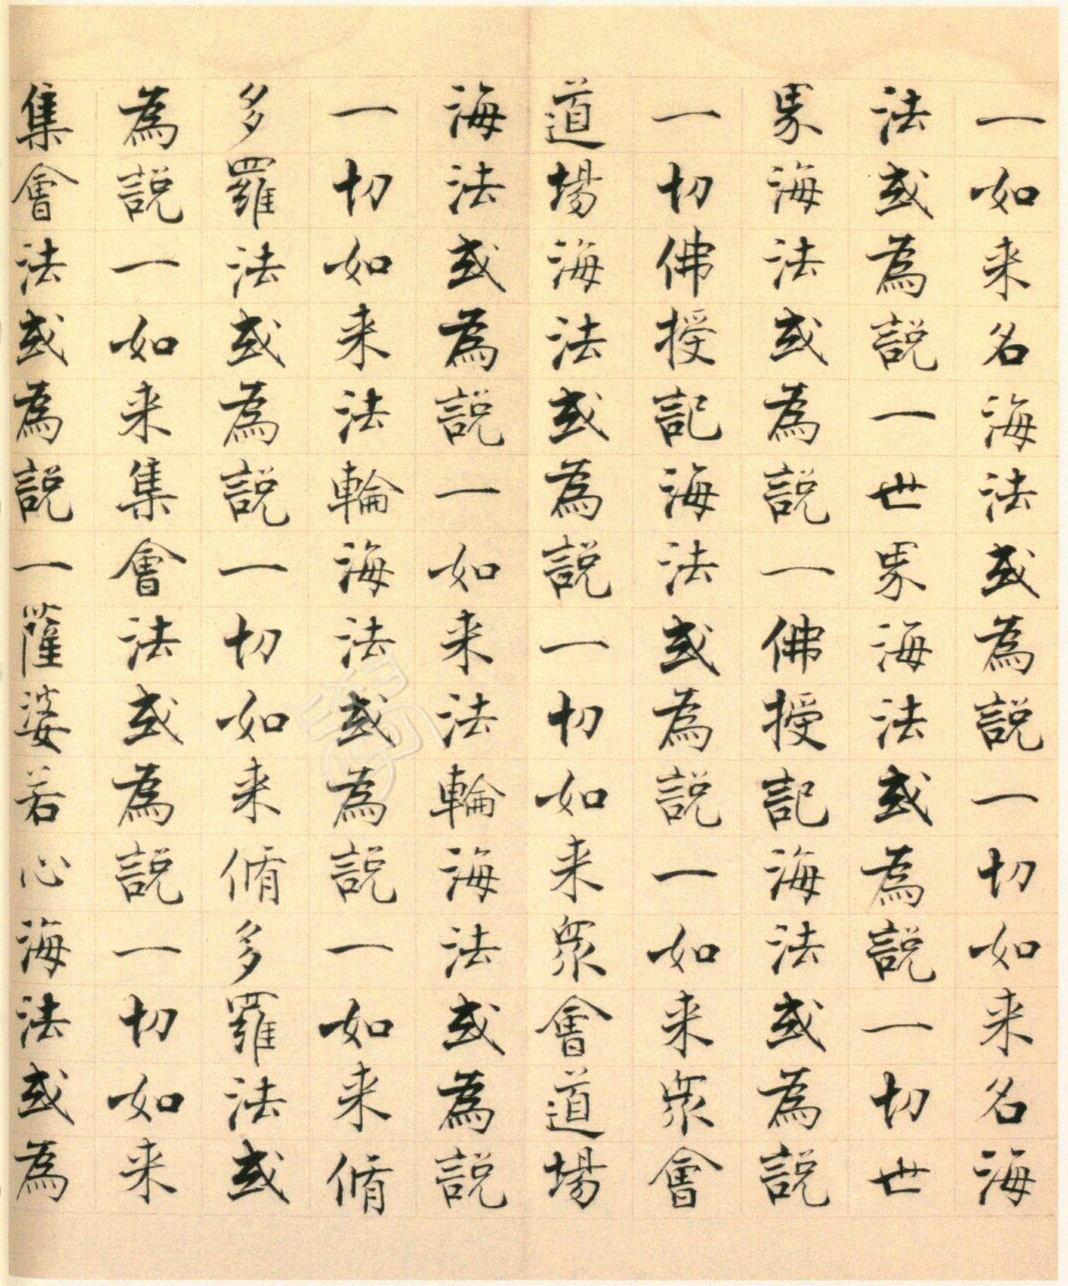 一如来名海法或為説一切如来名海
法或為説一世界海法或為説一切世
界海法或為説一佛授記海法或為説
一切佛授記海法或為説一如来衆會
道場海法或為説一切如来衆會道場
海法或為説一如来法輪海法或為説
一切如来法輪海法或為説一如来脩
多羅法或為説一切如来脩多羅法或
為説一如来集會法或為説一切如来
集會法或為説一薩婆若心海法或為